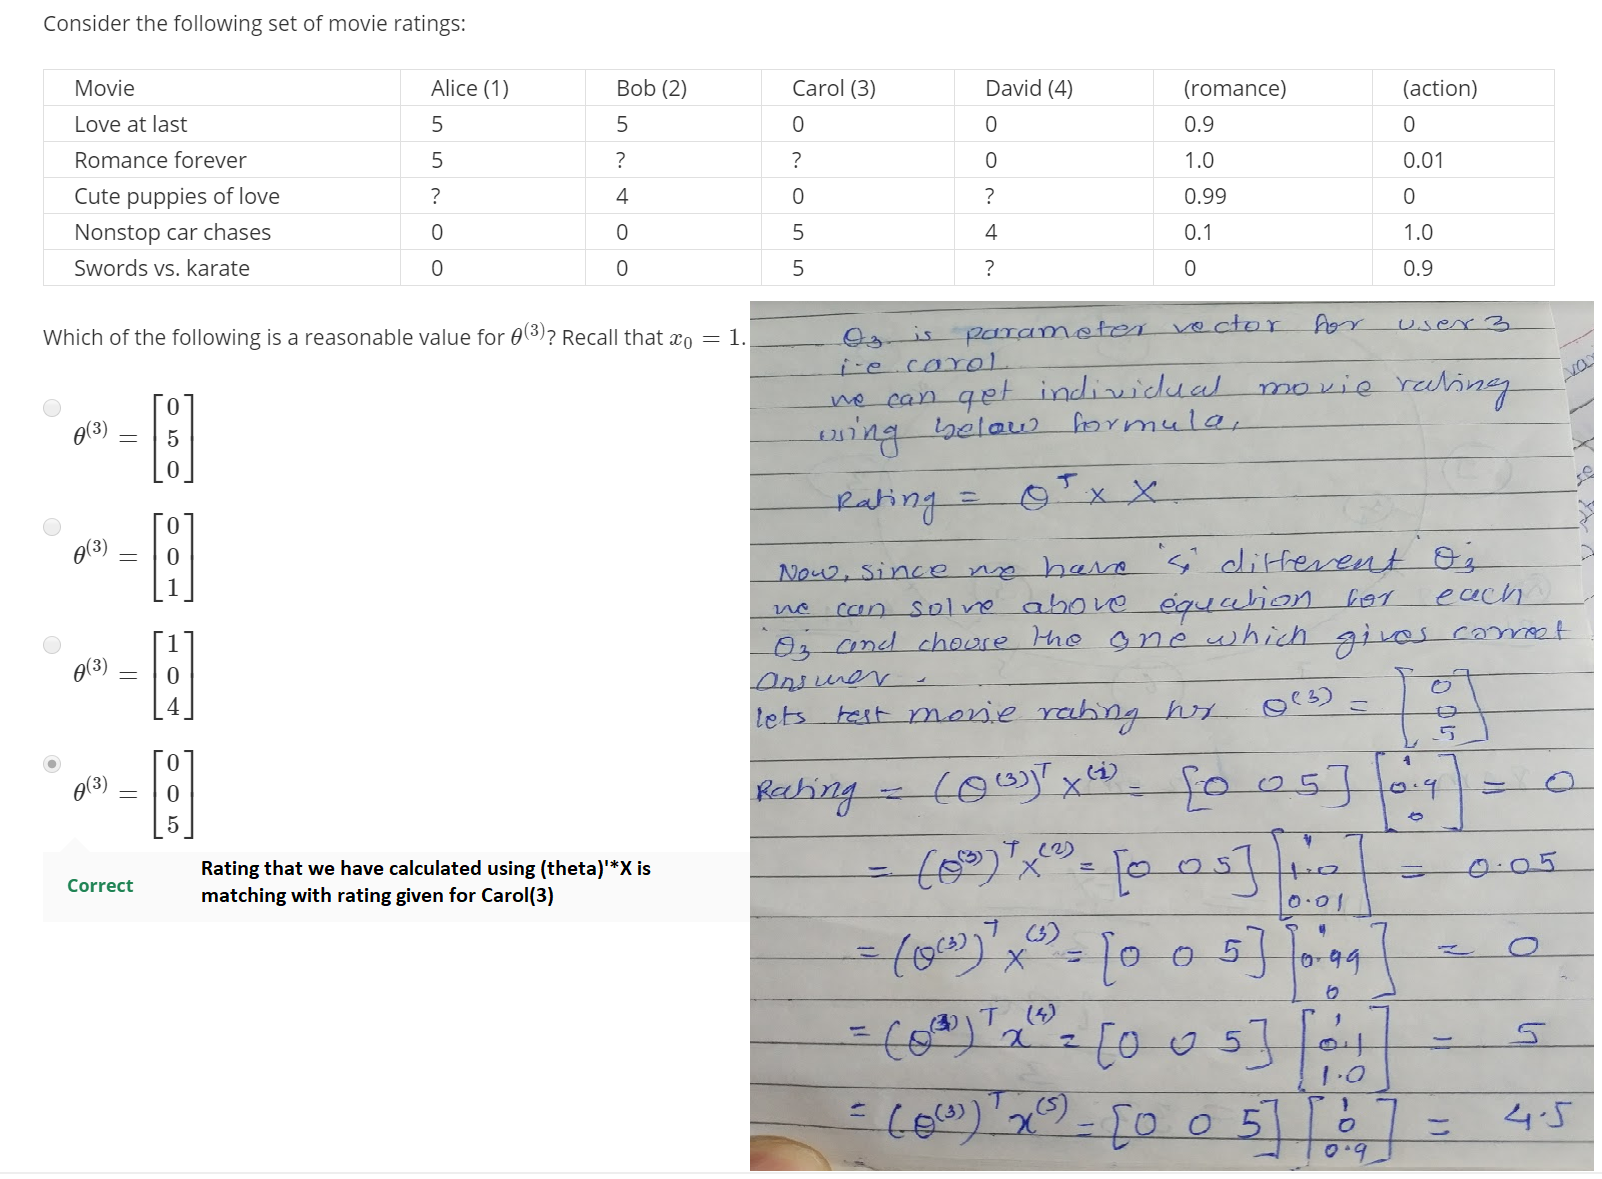 Consider the following set of movie ratings:
Movie Alice (1) Bob (2) Carol (3) David (4) (romance) (action)
Love at last 5 5 0 0 0.9 0
Romance forever 5 ? ? 0 1.0 0.01
Cute puppies of love ? 4 0 ? 0.99 0
Nonstop car chases 0 0 5 4 0.1 1.0
Swords vs. karate 0 0 5 ? 0 0.9
Which of the following is a reasonable value for θ^(3)? Recall that x₀ = 1.
θ^(3) = [0 5 0]
θ^(3) = [0 0 1]
θ^(3) = [1 0 4]
θ^(3) = [0 0 5]
Correct
Rating that we have calculated using (theta)'*X is
matching with rating given for Carol(3)
θ₃ is parameter vector for user 3
i.e carol
we can get individual movie rating
using below formula,
Rating = θ^T x X
Now, since we have different θ₃
we can solve above equation for each
θ₃ and choose the one which gives correct
answer.
lets test movie rating for θ^(3) = [0 0 5]
Rating = (θ^(3))^T x^(1) = [0 0 5] [1 0.9 0] = 0
= (θ^(3))^T x^(2) = [0 0 5] [1 1.0 0.01] = 0.05
= (θ^(3))^T x^(3) = [0 0 5] [1 0.99 0] = 0
= (θ^(3))^T x^(4) = [0 0 5] [1 0.1 1.0] = 5
= (θ^(3))^T x^(5) = [0 0 5] [1 0 0.9] = 4.5